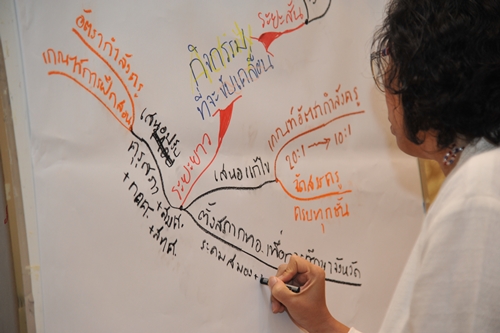 อัตรากำลังครู
เกณฑ์การฝึกสอน
กิจกรรม
ที่จะขับเคลื่อน
ระยะสั้น
ระยะยาว
เสนอ
คุรุสภา
+ กคศ.
+ สทศ.
เสนอแก้ไข
เกณฑ์อัตรากำลังครู
20:1 → 10:1
จัดสรรครู
ครบทุกชั้น
เพื่อการศึกษาจังหวัด
ระดมสมอง+